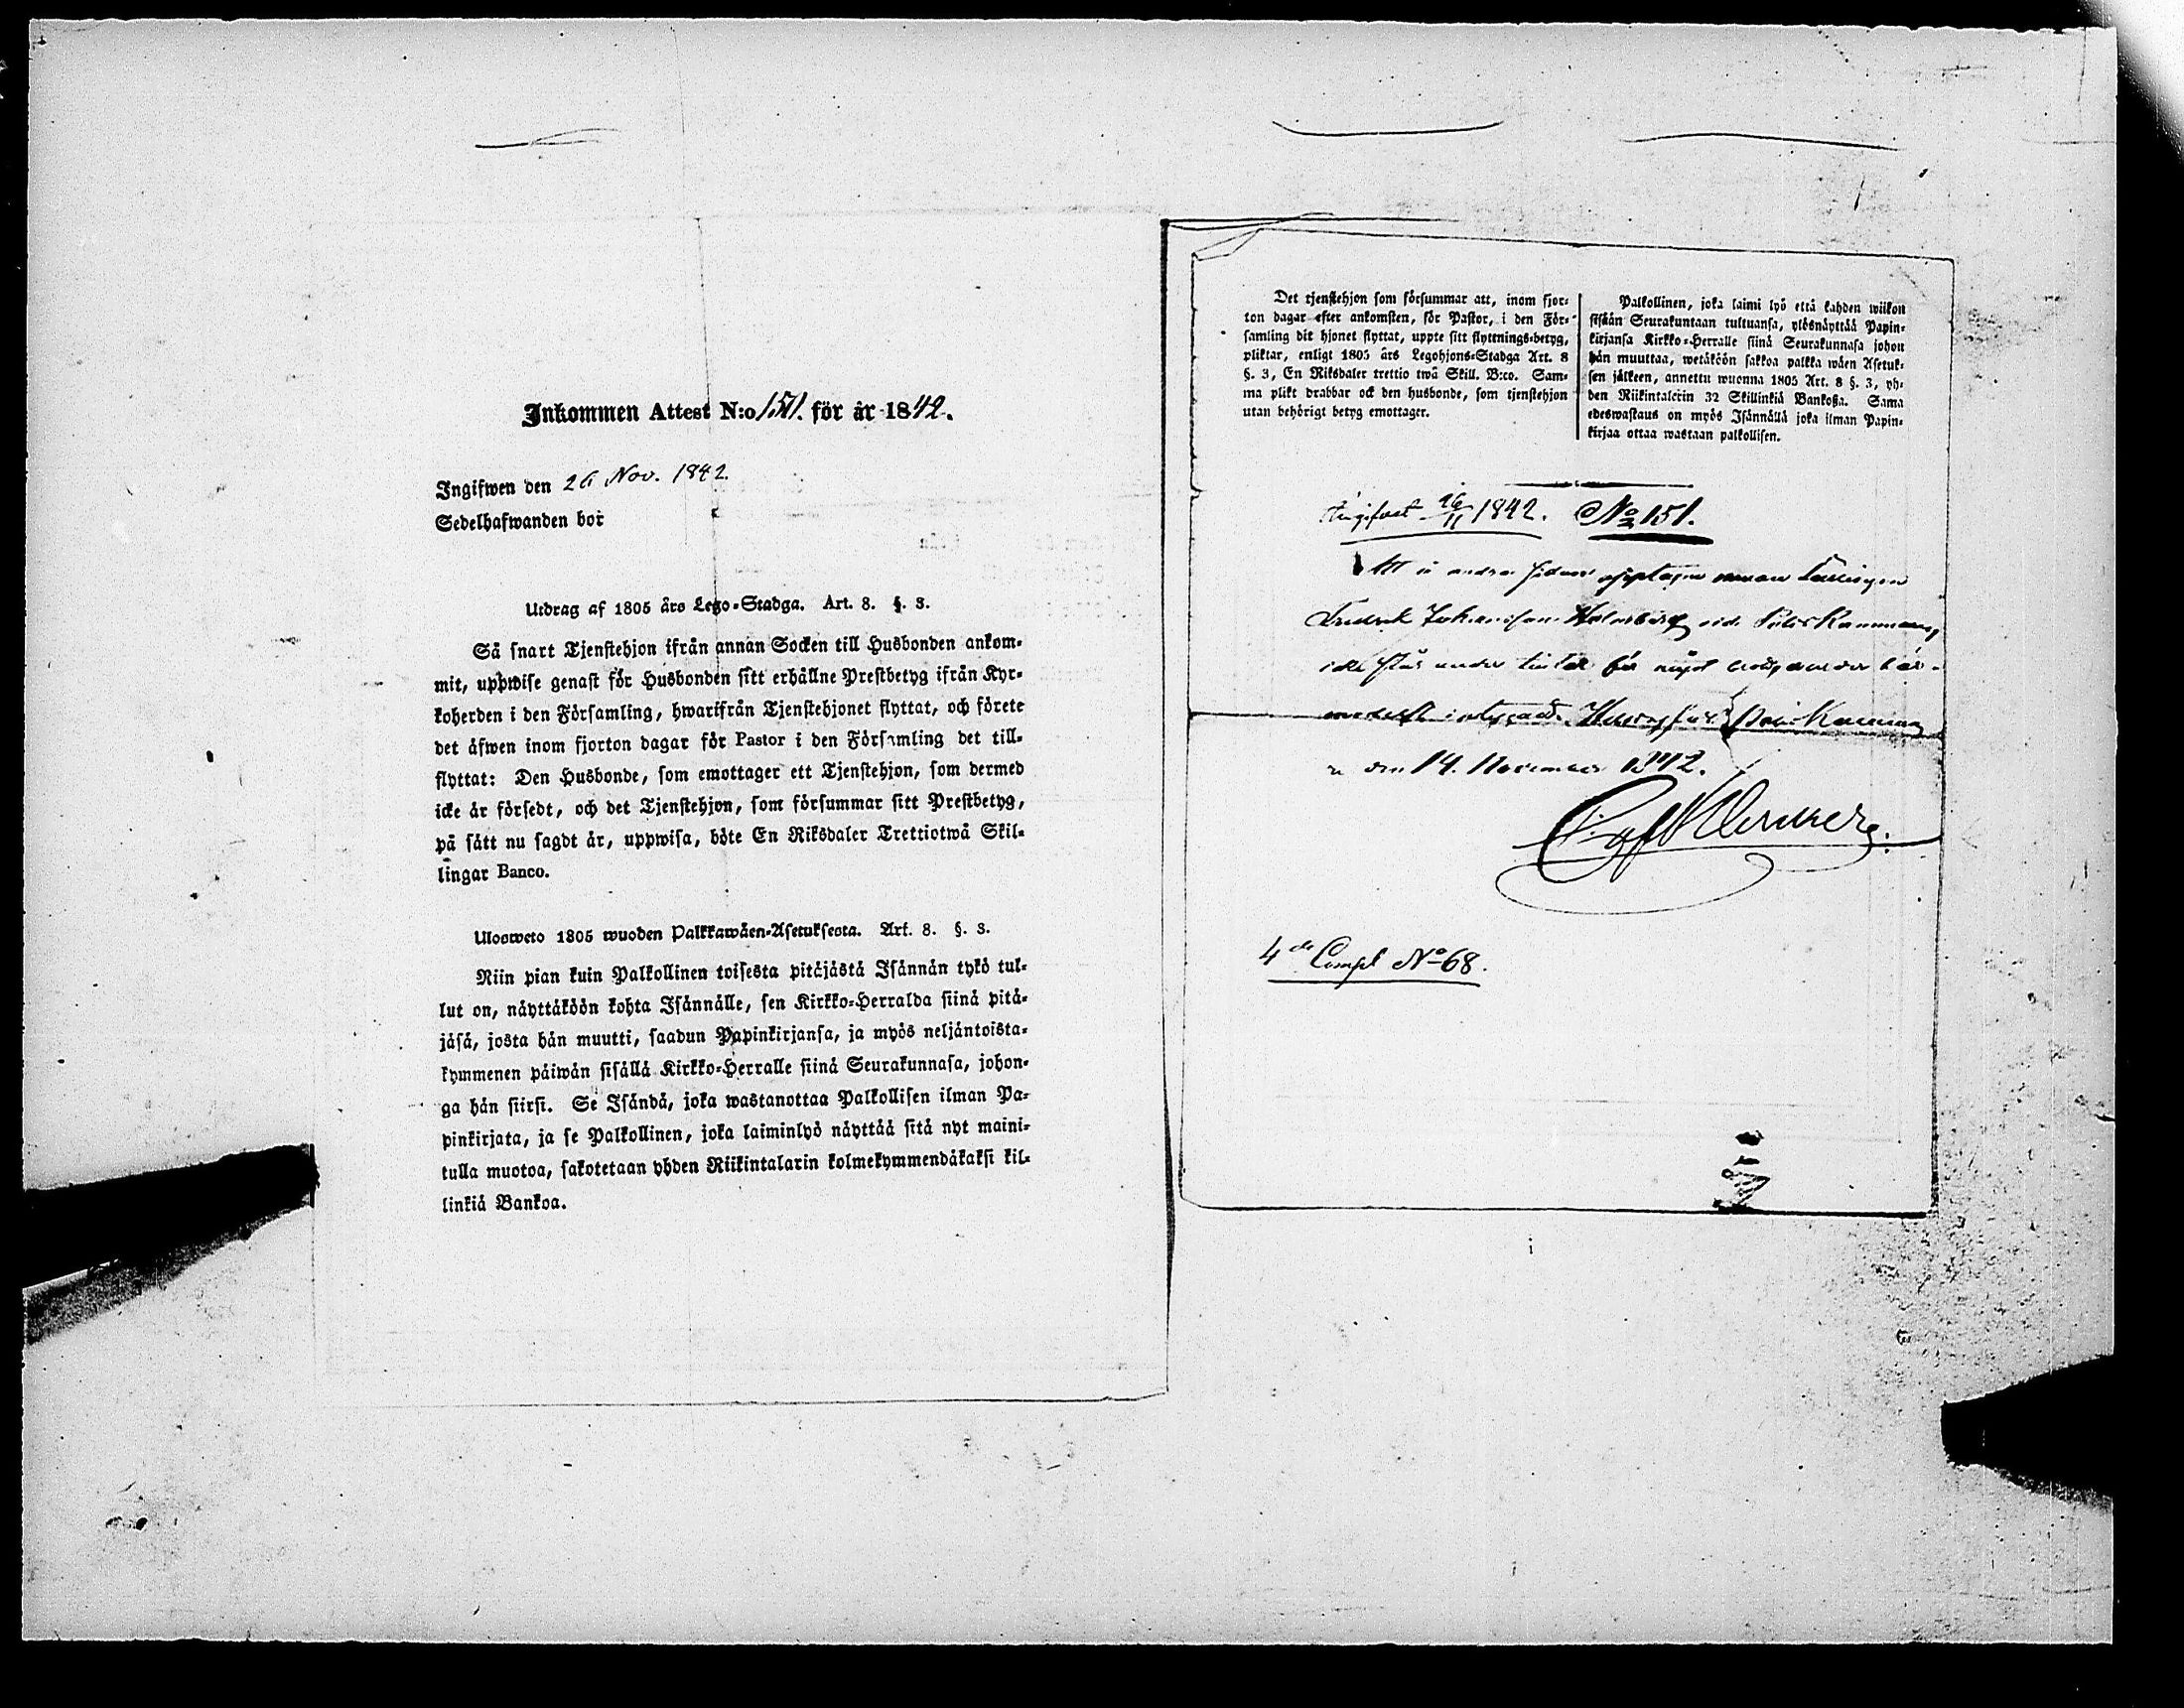 Inkommen Attest N:o 151. för år 1842.
Ingifwen den 26 Nov. 1842.
Sedelhafwanden bor
Utdrag af 1805 års Lego-Stadga. Art. 8. §. 3.
Så snart Tjenstehjon ifrån annan Socken till Husbonden ankom-
mit, uppwise genast för Husbonden sitt erhållne Prestbetyg ifrån Kyr-
koherden i den Församling, hwarifrån Tjenstehjonet flyttat, och förete
det äfwen inom fjorton dagar för Pastor i den Församling det till-
flyttat: Den Husbonde, som emottager ett Tjenstehjon, som dermed
icke är försedt, och det Tjenstehjon, som försummar sitt Prestbetyg,
på sätt nu sagdt är, uppwisa, böte En Riksdaler Trettiotwå Skil-
lingar Banco.
Ulosweto 1805 wuoden Palkkawäen-Asetuksesta. Art. 8. §. 3.
Niin pian kuin Palkollinen toisesta pitäjästä Isännän tykö tul-
lut on, näyttäköön kohta Isännälle, sen Kirkko-Herralda siinä pitä-
jäsä, josta hän muutti, saadun Papinkirjansa, ja myös neljäntoista-
kymmenen päiwän sisällä Kirkko-Herralle siinä Seurakunnasa, johon-
ga hän siirsi. Se Isändä, joka wastanottaa Palkollisen ilman Pa-
pinkirjata, ja se Palkollinen, joka laiminlyö näyttää sitä nyt maini-
tulla muotoa, sakotetaan yhden Riikintalarin kolmekymmendäkaksi kil-
linkiä Bankoa.
Det tjenstehjon som försummar att, inom fjor-
ton dagar efter ankomsten, för Pastor, i den För-
samling dit hjonet flyttat, uppte sitt flyttnings-betyg,
pliktar, enligt 1805 års Legohjons-Stadga Art. 8
§. 3, En Riksdaler trettio twå Skill. B:co. Sam-
ma plikt drabbar ock den husbonde, som tjenstehjon
utan behörigt betyg emottager.
Palkollinen, joka laimi lyö että kahden wiikon
sisään Seurakuntaan tultuansa, ylösnäyttää Papin-
kirjansa Kirkko-Herralle siinä Seurakunnasa johon
hän muuttaa, wetäköön sakkoa palkka wäen Asetuk-
sen jälkeen, annettu wuonna 1805 Art. 8 §. 3, yh-
den Riikintalerin 32 Skillinkiä Bankoßa. Sama
edeswastaus on myös Isännällä joka ilman Papin-
kirjaa ottaa wastaan palkollisen.
26/11 1842. No 151.
Att å andra sidan upptagne Lärlingen
Fredrik Johansson Holmberg vid
icke står under tiltal för något
den 14. November 1842.
4de Compl No 68.